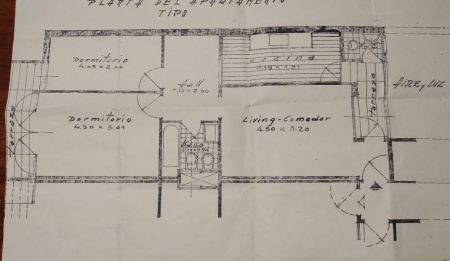 PLANTA DEL APARTAMENTO
TIPO
Dormitorio
4.05 x 2.00
Hall
Cocina
Terraza
AIRE y LUZ
Terraza
Dormitorio
4.30 x 3.01
Baño
Living-Comedor
4.50 x 3.20